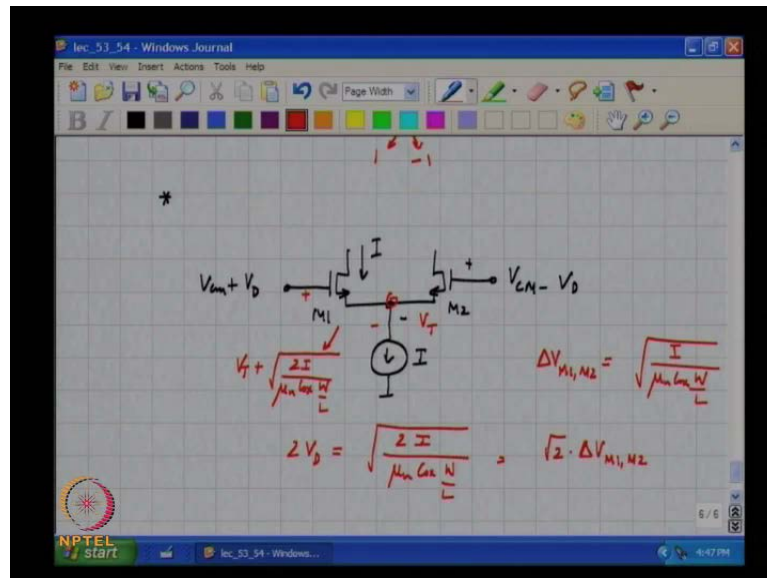 lec_53_54 - Windows Journal
File Edit View Insert Actions Tools Help
Page Width
B I
1 -1
*
I
Vcm + VD + + VCM - VD
M1 - - VT M2
VT + √(2I / μn Cox W/L) I ΔVM1,M2 = √(I / μn Cox W/L)
2 VD = √(2I / μn Cox W/L) = √2 · ΔVM1,M2
6/6
NPTEL
start lec_53_54 - Windows... 4:47 PM